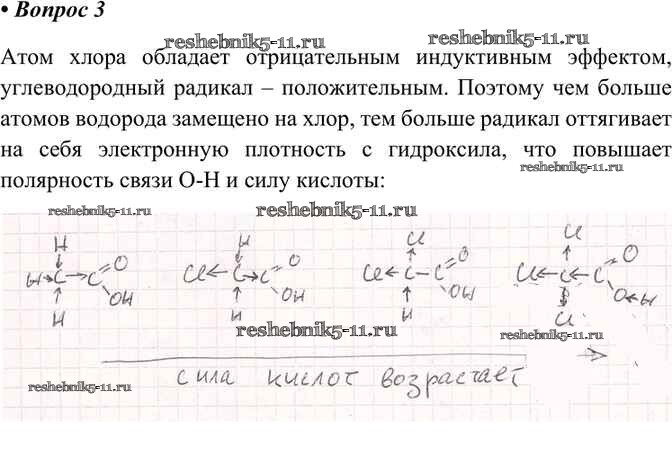 • Вопрос 3
reshebnik5-11.ru
reshebnik5-11.ru
Атом хлора обладает отрицательным индуктивным эффектом,
углеводородный радикал – положительным. Поэтому чем больше
атомов водорода замещено на хлор, тем больше радикал оттягивает
на себя электронную плотность с гидроксила, что повышает
reshebnik5-11.ru
полярность связи О-Н и силу кислоты:
reshebnik5-11.ru
reshebnik5-11.ru
H H Cl Cl
H C C O Cl C C O Cl C C O Cl C C O
OH OH OH O H
H H H Cl
reshebnik5-11.ru
reshebnik5-11.ru
сила кислот возрастает
reshebnik5-11.ru